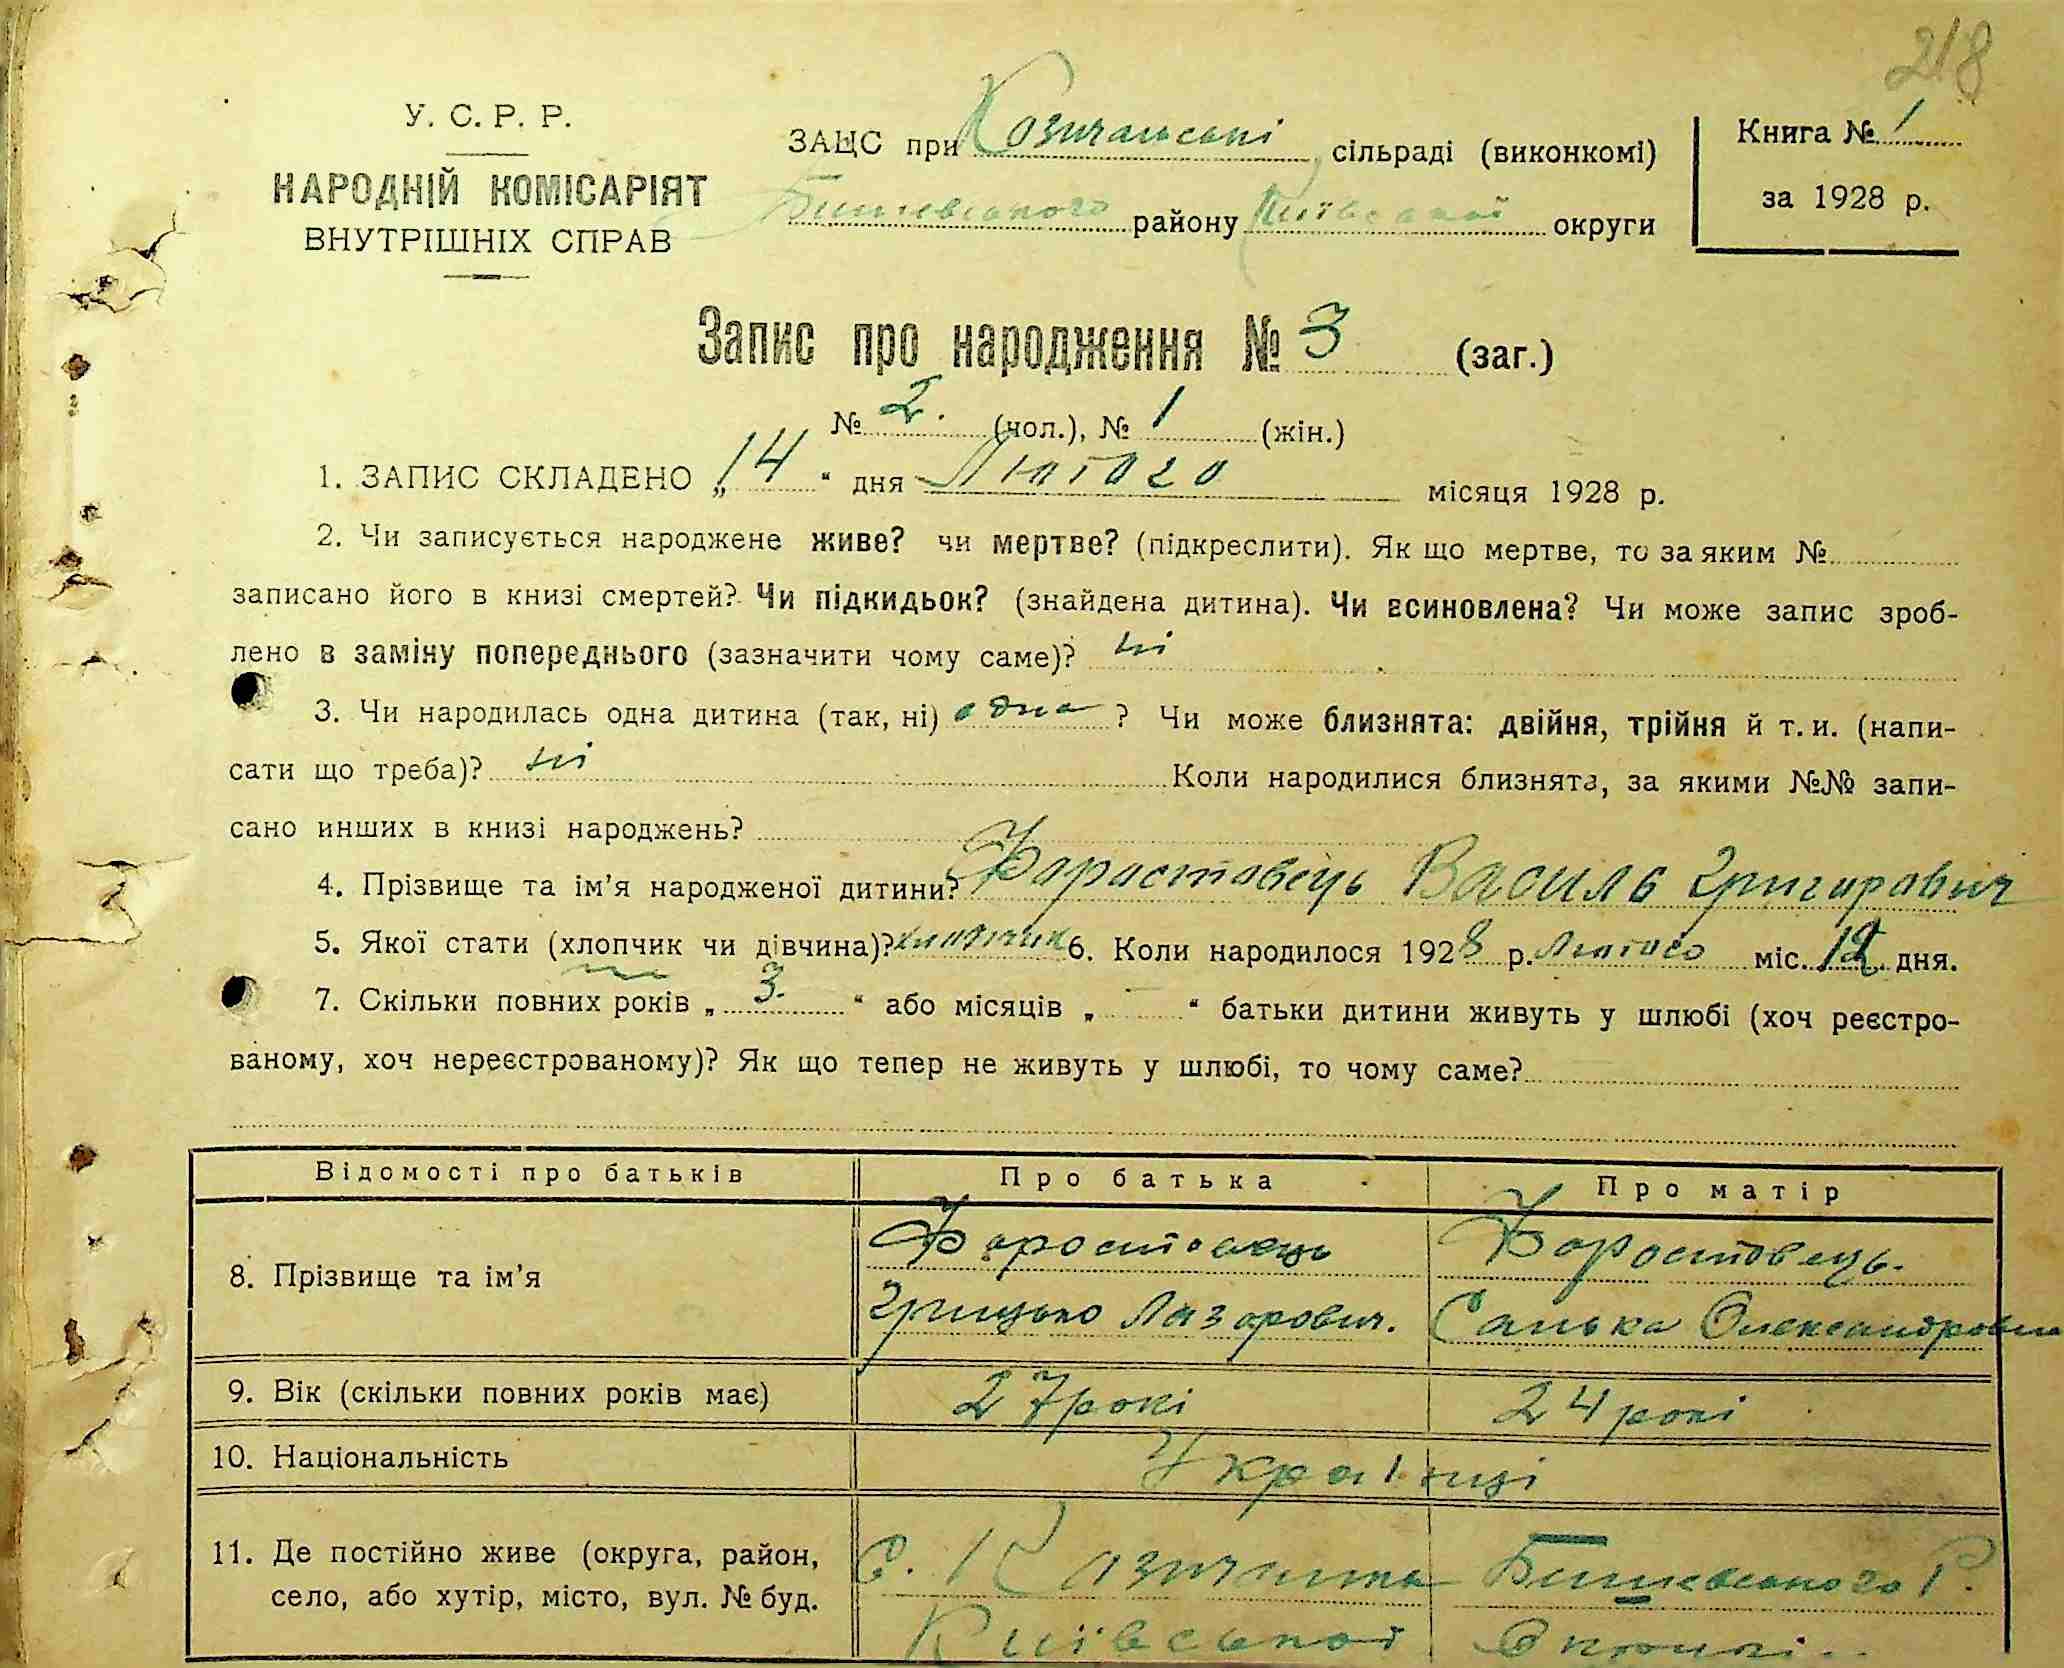 218
У. С. Р. Р.
НАРОДНІЙ КОМІСАРІЯТ
ВНУТРІШНІХ СПРАВ
ЗАЦС при Козичанські сільраді (виконкомі)
Бишевського району Київської округи
Книга № 1
за 1928 р.
Запис про народження № 3 (заг.)
№ 2. (чол.), № 1 (жін.)
1. ЗАПИС СКЛАДЕНО „14“ дня Лютого місяця 1928 р.
2. Чи записується народжене живе? чи мертве? (підкреслити). Як що мертве, то за яким №
записано його в книзі смертей? Чи підкидьок? (знайдена дитина). Чи всиновлена? Чи може запис зроб-
лено в заміну попереднього (зазначити чому саме)? ні
3. Чи народилась одна дитина (так, ні) одна ? Чи може близнята: двійня, трійня й т. и. (напи-
сати що треба)? ні Коли народилися близнята, за якими №№ запи-
сано инших в книзі народжень?
4. Прізвище та ім'я народженої дитини? Форостовець Василь Григорович
5. Якої стати (хлопчик чи дівчина)? хлопчик 6. Коли народилося 1928 р. Лютого міс. 12 дня.
7. Скільки повних років „ 3. “ або місяців „ “ батьки дитини живуть у шлюбі (хоч реєстро-
ваному, хоч нереєстрованому)? Як що тепер не живуть у шлюбі, то чому саме?
Відомості про батьків Про батька Про матір
8. Прізвище та ім'я Форостовець Форостовець.
Грицько Лазорович. Санька Олександровна
9. Вік (скільки повних років має) 27 рокі 24 рокі
10. Національність Українці
11. Де постійно живе (округа, район, с. Козичанка Бишевського Р.
село, або хутір, місто, вул. № буд. Київської Округі.